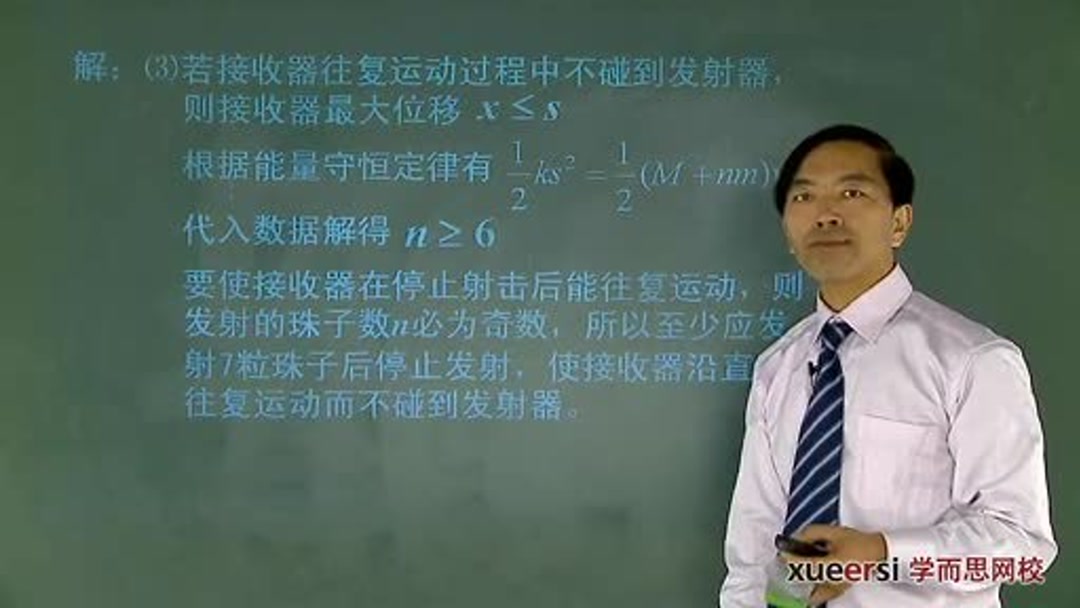 解：(3)若接收器往复运动过程中不碰到发射器，
则接收器最大位移 x ≤ s
根据能量守恒定律有 1/2 ks² = 1/2 (M + nm)
代入数据解得 n ≥ 6
要使接收器在停止射击后能往复运动，则
发射的珠子数n必为奇数，所以至少应发
射7粒珠子后停止发射，使接收器沿直
往复运动而不碰到发射器。
xueersi 学而思网校